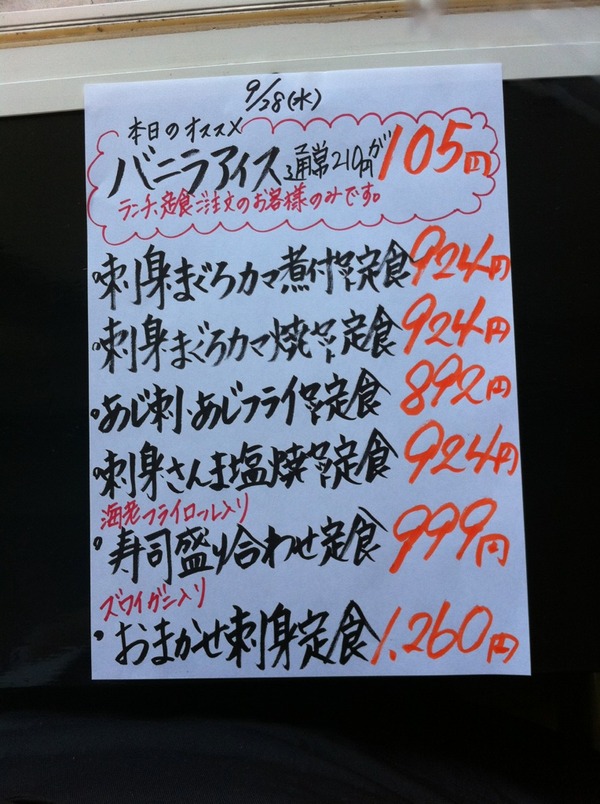 9/28(水)
本日のオススメ
バニラアイス通常210円が105円
ランチ、定食ご注文のお客様のみです。
刺身まぐろカマ煮付定食924円
刺身まぐろカマ焼定食924円
あじ刺・あじフライ定食892円
刺身さんま塩焼定食924円
海老フライロール入り
寿司盛り合わせ定食999円
ズワイガニ入り
おまかせ刺身定食1,260円